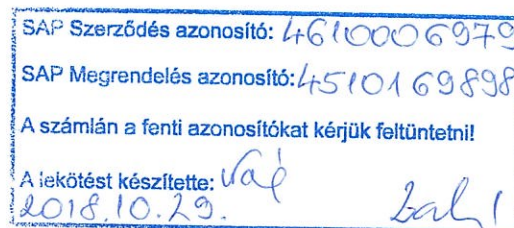 SAP Szerződés azonosító: 4610006979
SAP Megrendelés azonosító: 4510169898
A számlán a fenti azonosítókat kérjük feltüntetni!
A lekötést készítette:
2018.10.29.